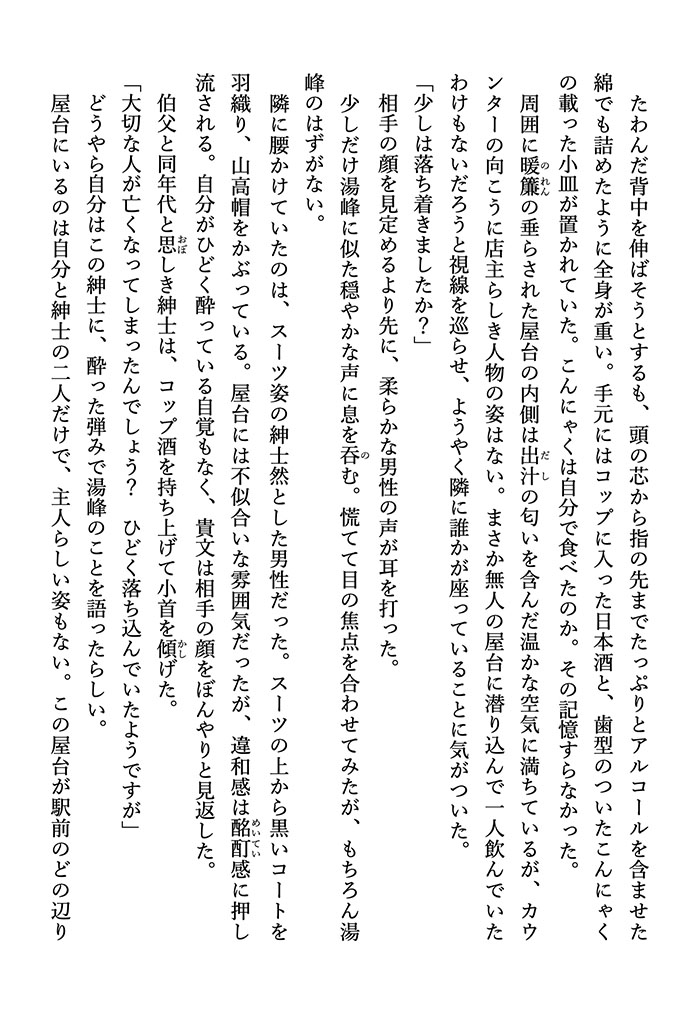 たわんだ背中を伸ばそうとするも、頭の芯から指の先までたっぷりとアルコールを含ませた
綿でも詰めたように全身が重い。手元にはコップに入った日本酒と、歯型のついたこんにゃく
の載った小皿が置かれていた。こんにゃくは自分で食べたのか。その記憶すらなかった。
　周囲に暖簾の垂らされた屋台の内側は出汁の匂いを含んだ温かな空気に満ちているが、カウ
ンターの向こうに店主らしき人物の姿はない。まさか無人の屋台に潜り込んで一人飲んでいた
わけもないだろうと視線を巡らせ、ようやく隣に誰かが座っていることに気がついた。
「少しは落ち着きましたか？」
　相手の顔を見定めるより先に、柔らかな男性の声が耳を打った。
　少しだけ湯峰に似た穏やかな声に息を呑む。慌てて目の焦点を合わせてみたが、もちろん湯
峰のはずがない。
　隣に腰かけていたのは、スーツ姿の紳士然とした男性だった。スーツの上から黒いコートを
羽織り、山高帽をかぶっている。屋台には不似合いな雰囲気だったが、違和感は酩酊感に押し
流される。自分がひどく酔っている自覚もなく、貴文は相手の顔をぼんやりと見返した。
　伯父と同年代と思しき紳士は、コップ酒を持ち上げて小首を傾げた。
「大切な人が亡くなってしまったんでしょう？　ひどく落ち込んでいたようですが」
　どうやら自分はこの紳士に、酔った弾みで湯峰のことを語ったらしい。
　屋台にいるのは自分と紳士の二人だけで、主人らしい姿もない。この屋台が駅前のどの辺り